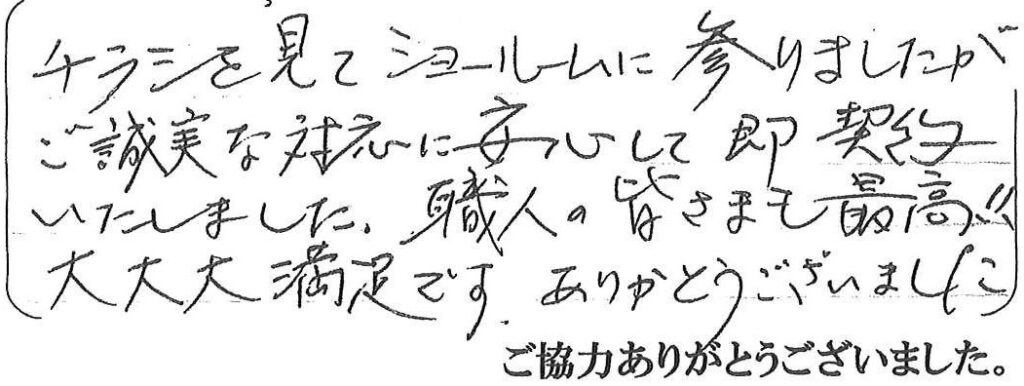 チラシを見てショールームに参りましたが
ご誠実な対応に安心して即契約
いたしました。職人の皆さまも最高!!
大大大満足です。ありがとうございました
ご協力ありがとうございました。